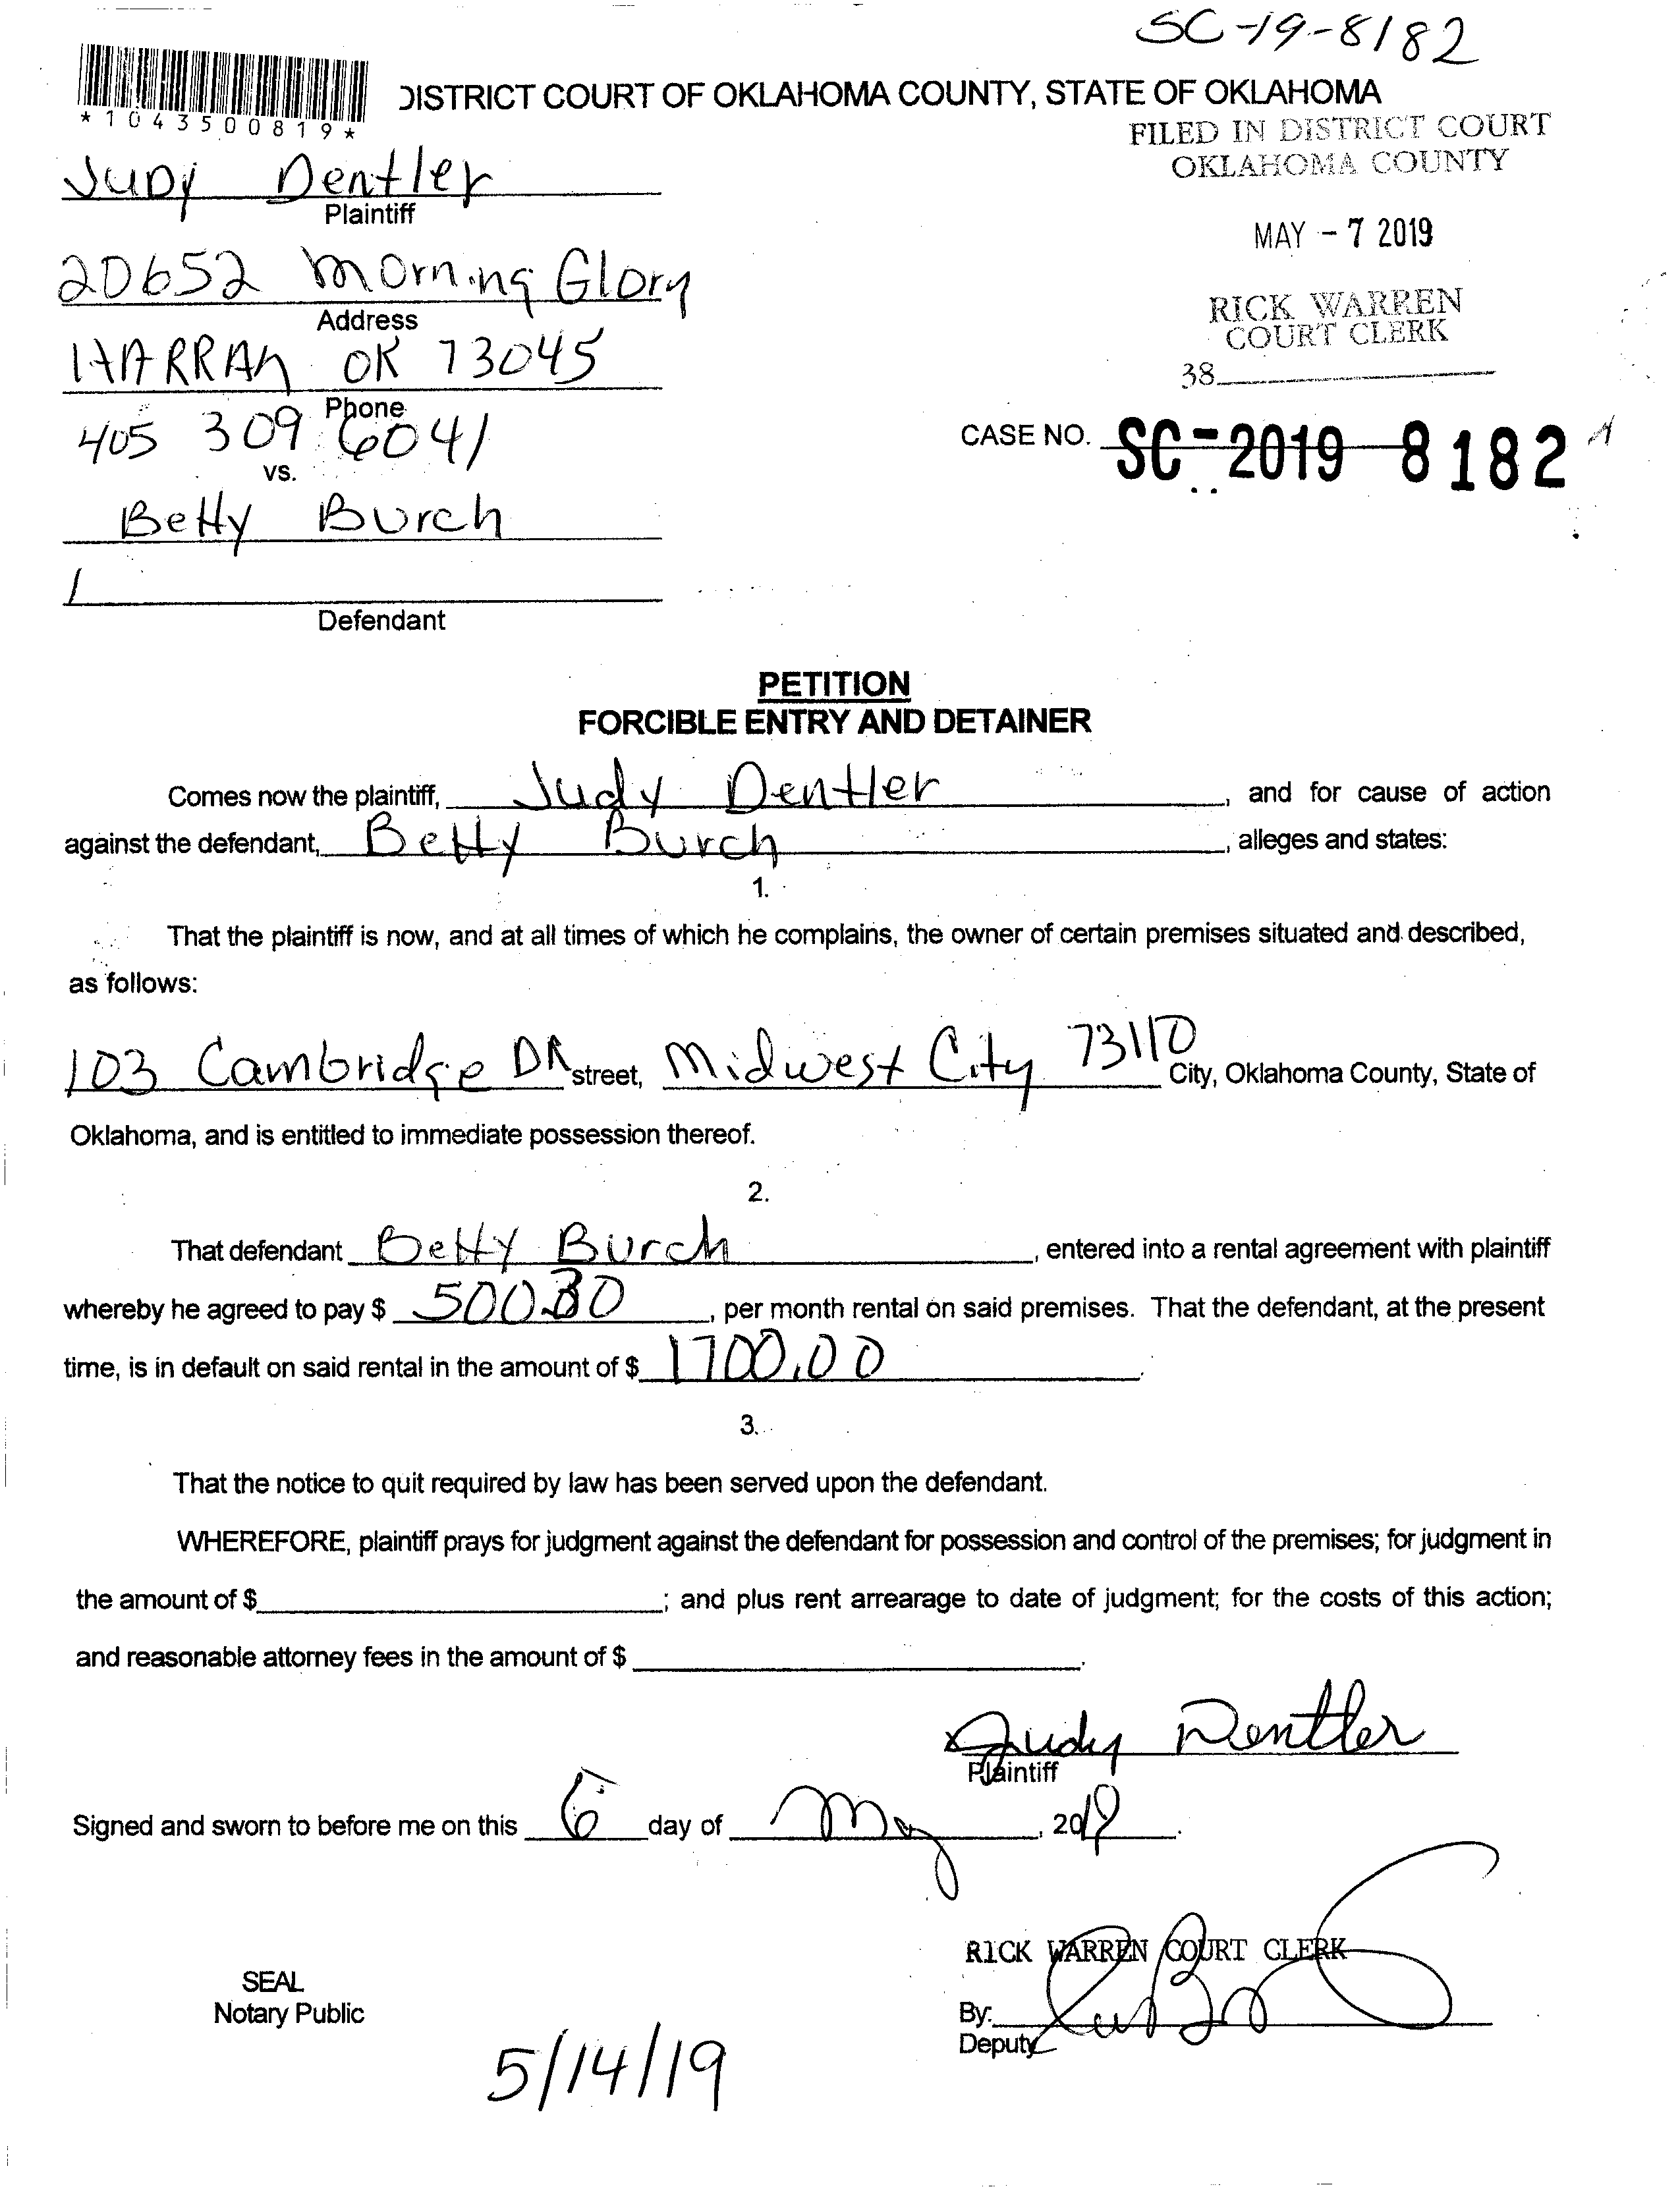 SC-19-8182
*1043500819*
DISTRICT COURT OF OKLAHOMA COUNTY, STATE OF OKLAHOMA
FILED IN DISTRICT COURT
OKLAHOMA COUNTY
Judy Dentler
Plaintiff
MAY - 7 2019
20652 Morning Glory
Address
RICK WARREN
COURT CLERK
HARRAh OK 73045
38
Phone
405 309 6041
CASE NO. SC-2019 8182
vs.
Betty Burch
Defendant
PETITION
FORCIBLE ENTRY AND DETAINER
Comes now the plaintiff, Judy Dentler, and for cause of action
against the defendant, Betty Burch, alleges and states:
1.
That the plaintiff is now, and at all times of which he complains, the owner of certain premises situated and described,
as follows:
103 Cambridge DR street, Midwest City 73110 City, Oklahoma County, State of
Oklahoma, and is entitled to immediate possession thereof.
2.
That defendant Betty Burch, entered into a rental agreement with plaintiff
whereby he agreed to pay $ 500, per month rental on said premises. That the defendant, at the present
time, is in default on said rental in the amount of $ 1700.00.
3.
That the notice to quit required by law has been served upon the defendant.
WHEREFORE, plaintiff prays for judgment against the defendant for possession and control of the premises; for judgment in
the amount of $ ; and plus rent arrearage to date of judgment; for the costs of this action;
and reasonable attorney fees in the amount of $ .
Judy Dentler
Plaintiff
Signed and sworn to before me on this 6 day of May, 2019.
RICK WARREN COURT CLERK
SEAL
Notary Public
By:
Deputy
5/14/19